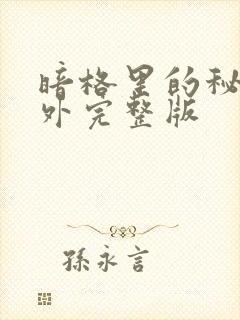 暗格里的秘
外完整版
孫永言